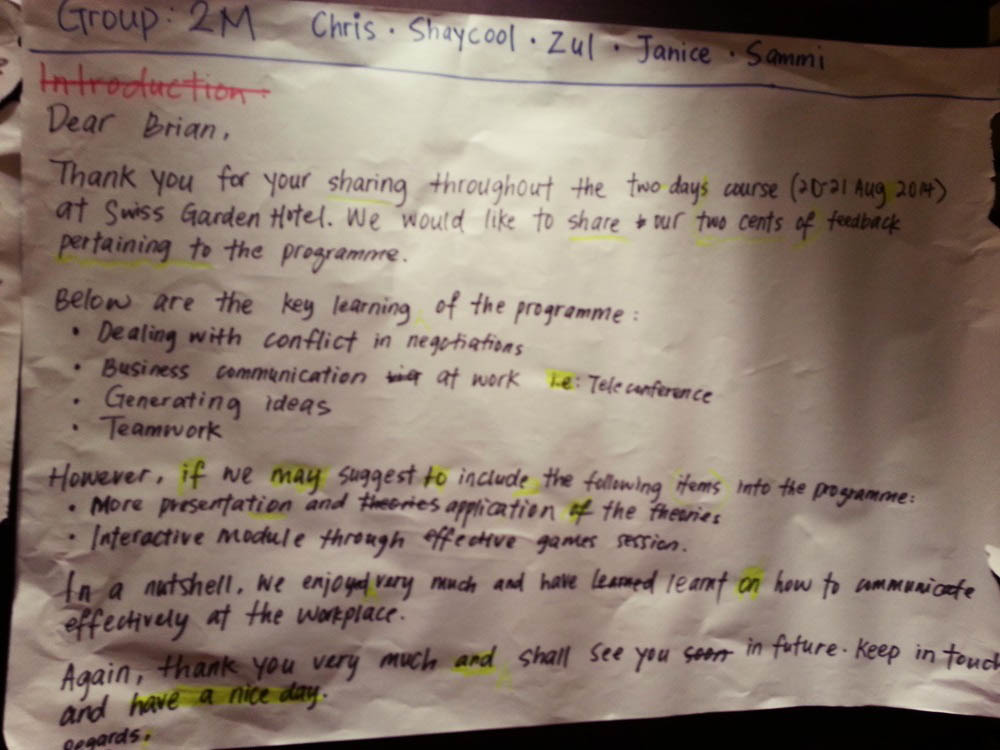 Group: 2M Chris · Shaycool · Zul · Janice · Sammi
Introduction:
Dear Brian,
Thank you for your sharing throughout the two days course (20-21 Aug 2014)
at Swiss Garden Hotel. We would like to share our two cents of feedback
pertaining to the programme.
Below are the key learning of the programme:
• Dealing with conflict in negotiations
• Business communication via at work i.e: Teleconference
• Generating ideas
• Teamwork
However, if we may suggest to include the following items into the programme:
• More presentation and theories application of the theories
• Interactive module through effective games session.
In a nutshell, we enjoyed very much and have learned learnt on how to communicate
effectively at the workplace.
Again, thank you very much and shall see you soon in future. Keep in touch
and have a nice day.
Regards,